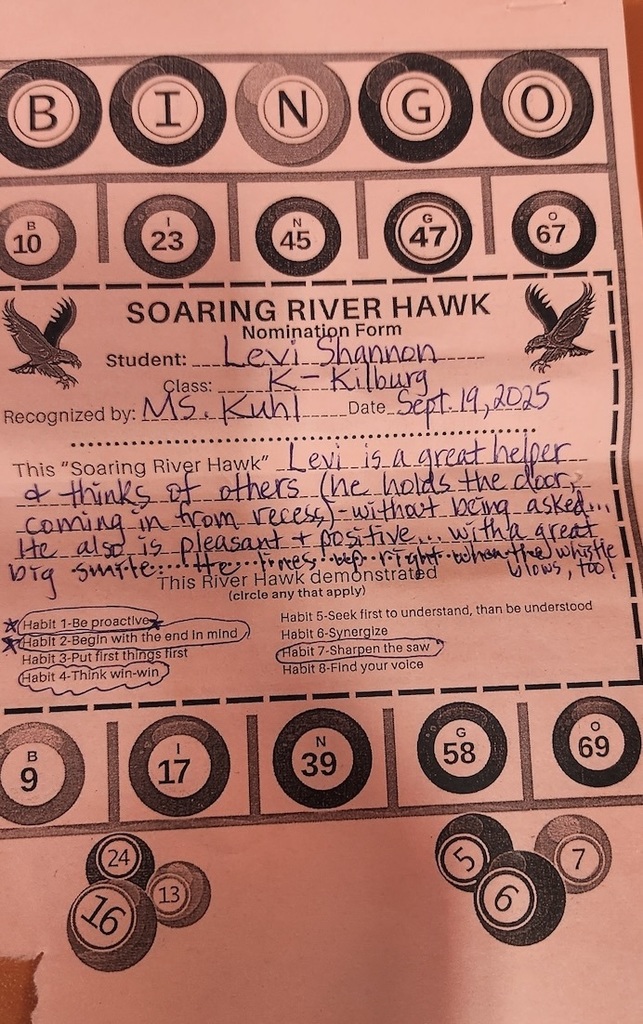 B I N G O
B 10 I 23 N 45 G 47 O 67
SOARING RIVER HAWK
Nomination Form
Student: Levi Shannon
Class: K-Kilburg
Recognized by: Ms. Kuhl Date Sept 19, 2025
This "Soaring River Hawk" Levi is a great helper
& thinks of others (he holds the door,
coming in from recess) - without being asked...
He also is pleasant + positive... with a great
big smile. He lines up right when the whistle
blows, too!
This River Hawk demonstrated
(circle any that apply)
Habit 1-Be proactive
Habit 2-Begin with the end in mind
Habit 3-Put first things first
Habit 4-Think win-win
Habit 5-Seek first to understand, than be understood
Habit 6-Synergize
Habit 7-Sharpen the saw
Habit 8-Find your voice
B 9 I 17 N 39 G 58 O 69
24 13 16
5 7 6